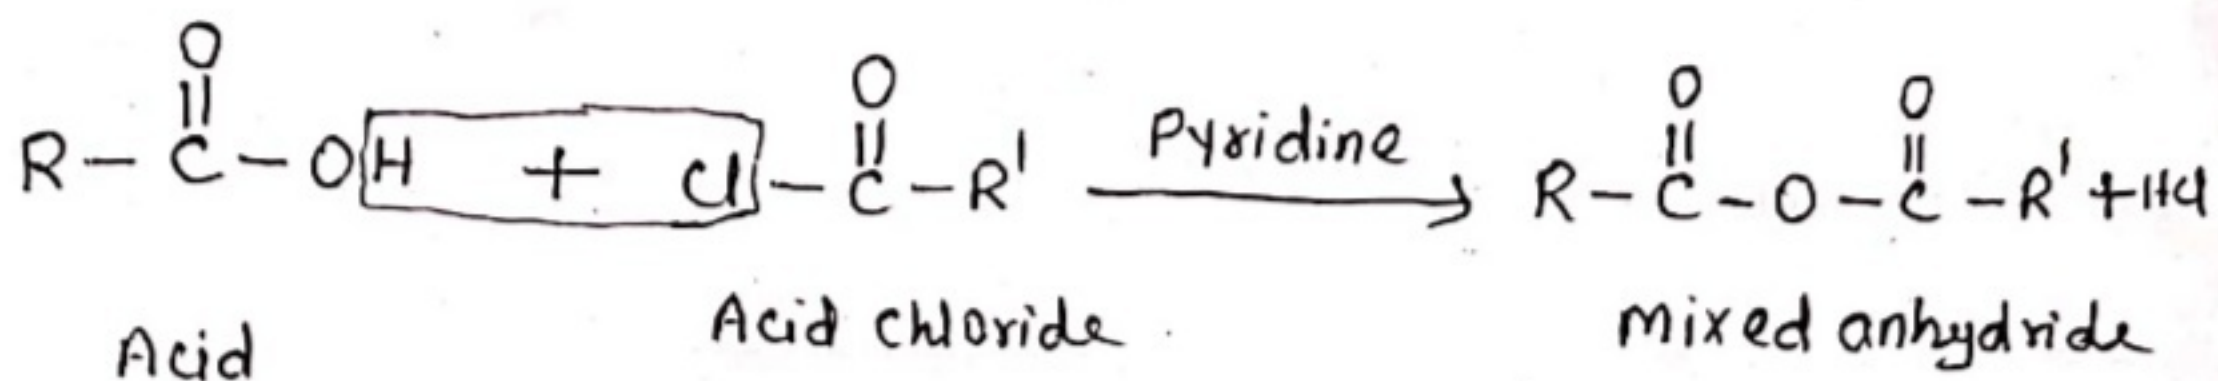 O O O O
|| || || ||
R - C - OH + Cl - C - R' Pyridine → R - C - O - C - R' + HCl
Acid Acid chloride mixed anhydride